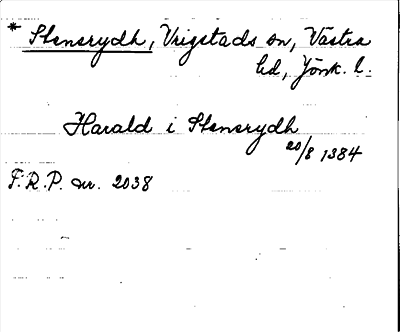 * Stensrydh, Vrigstads sn, Västra
hd, Jönk. l.
Harald i Stensrydh
20/8 1384
F.R.P. nr. 2038